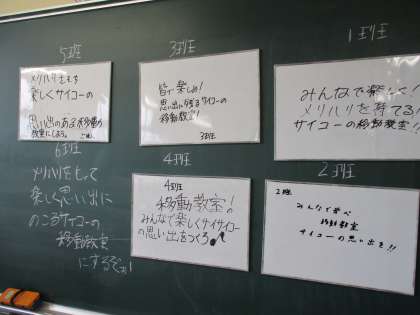 5班
メリハリをもち
楽しくサイコーの
思い出のある移動
教室にしよう。
3班
皆で楽しめ!
思い出に残るサイコーの
移動教室!!
3班
1班
みんなで楽しく!
メリハリを持てる!
サイコーの移動教室!!
6班
メリハリをもって
楽しく思い出に
のこるサイコーの
移動教室
にするぞぉ!
4班
4班
移動教室!
みんなで楽しくサイサイコー
の思い出をつくろ
2班
2班
みんなで学べ
移動教室
サイコーの思い出を!!